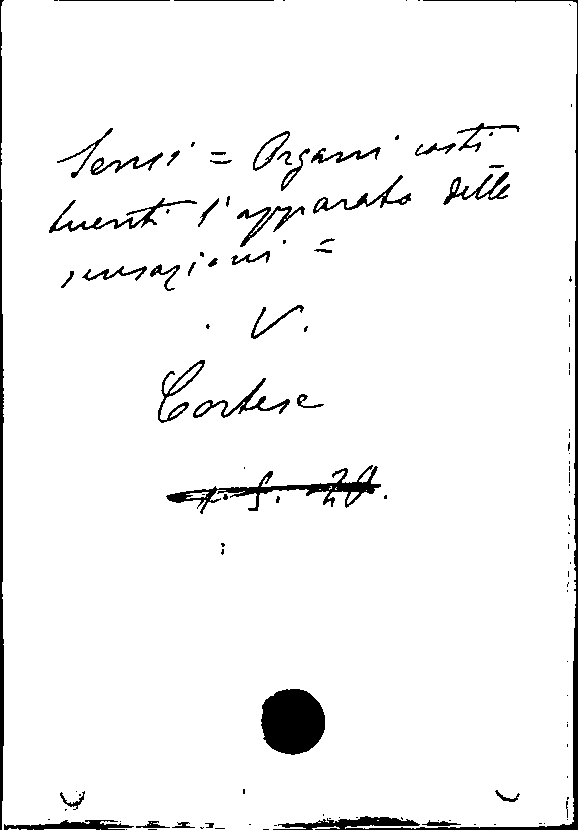 Sensi = Organi costi
tuenti l'apparato delle
sensazioni =
V.
Cortese